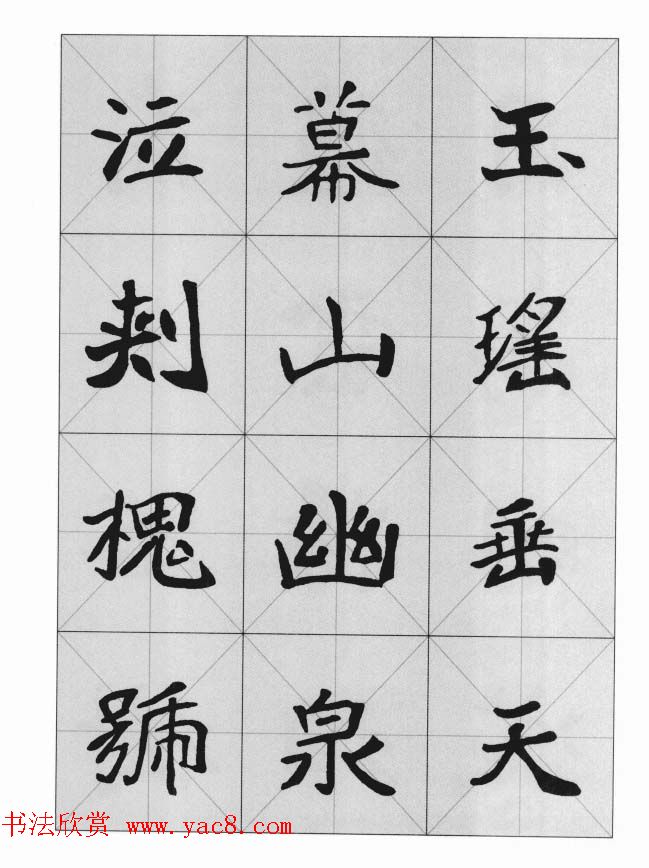 玉瑤垂天
幕山幽泉
泣刾槐號
书法欣赏 www.yac8.com